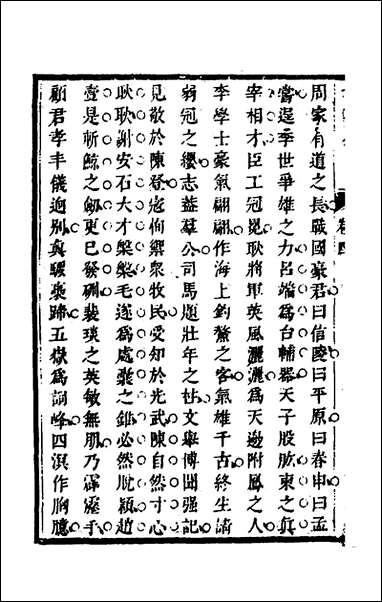 周家有道之長戰國豪君曰信陵曰平原曰春申曰孟
嘗逞季世爭雄之力呂端為台輔器天子股肱東之真
宰相才臣工冠冕耿將軍英風灑灑為天邊附鳳之人
李學士豪氣翩翩作海上釣鰲之客氣雄千古終生請
弱冠之纓志益羣公司馬題壯年之柱文舉博聞强記
見敬於陳登寇恂禦眾牧民受知於光武陳自然寸心
耿耿謝安石大才槃槃毛遂為處囊之錐必然脫穎趙
壹是斫鯨之劒更已發硎裴琰之英敏無朋乃霹靂手
顧君孝丰儀迥別真騕褭蹄五嶽為詞峰四溟作胸臆
卷四